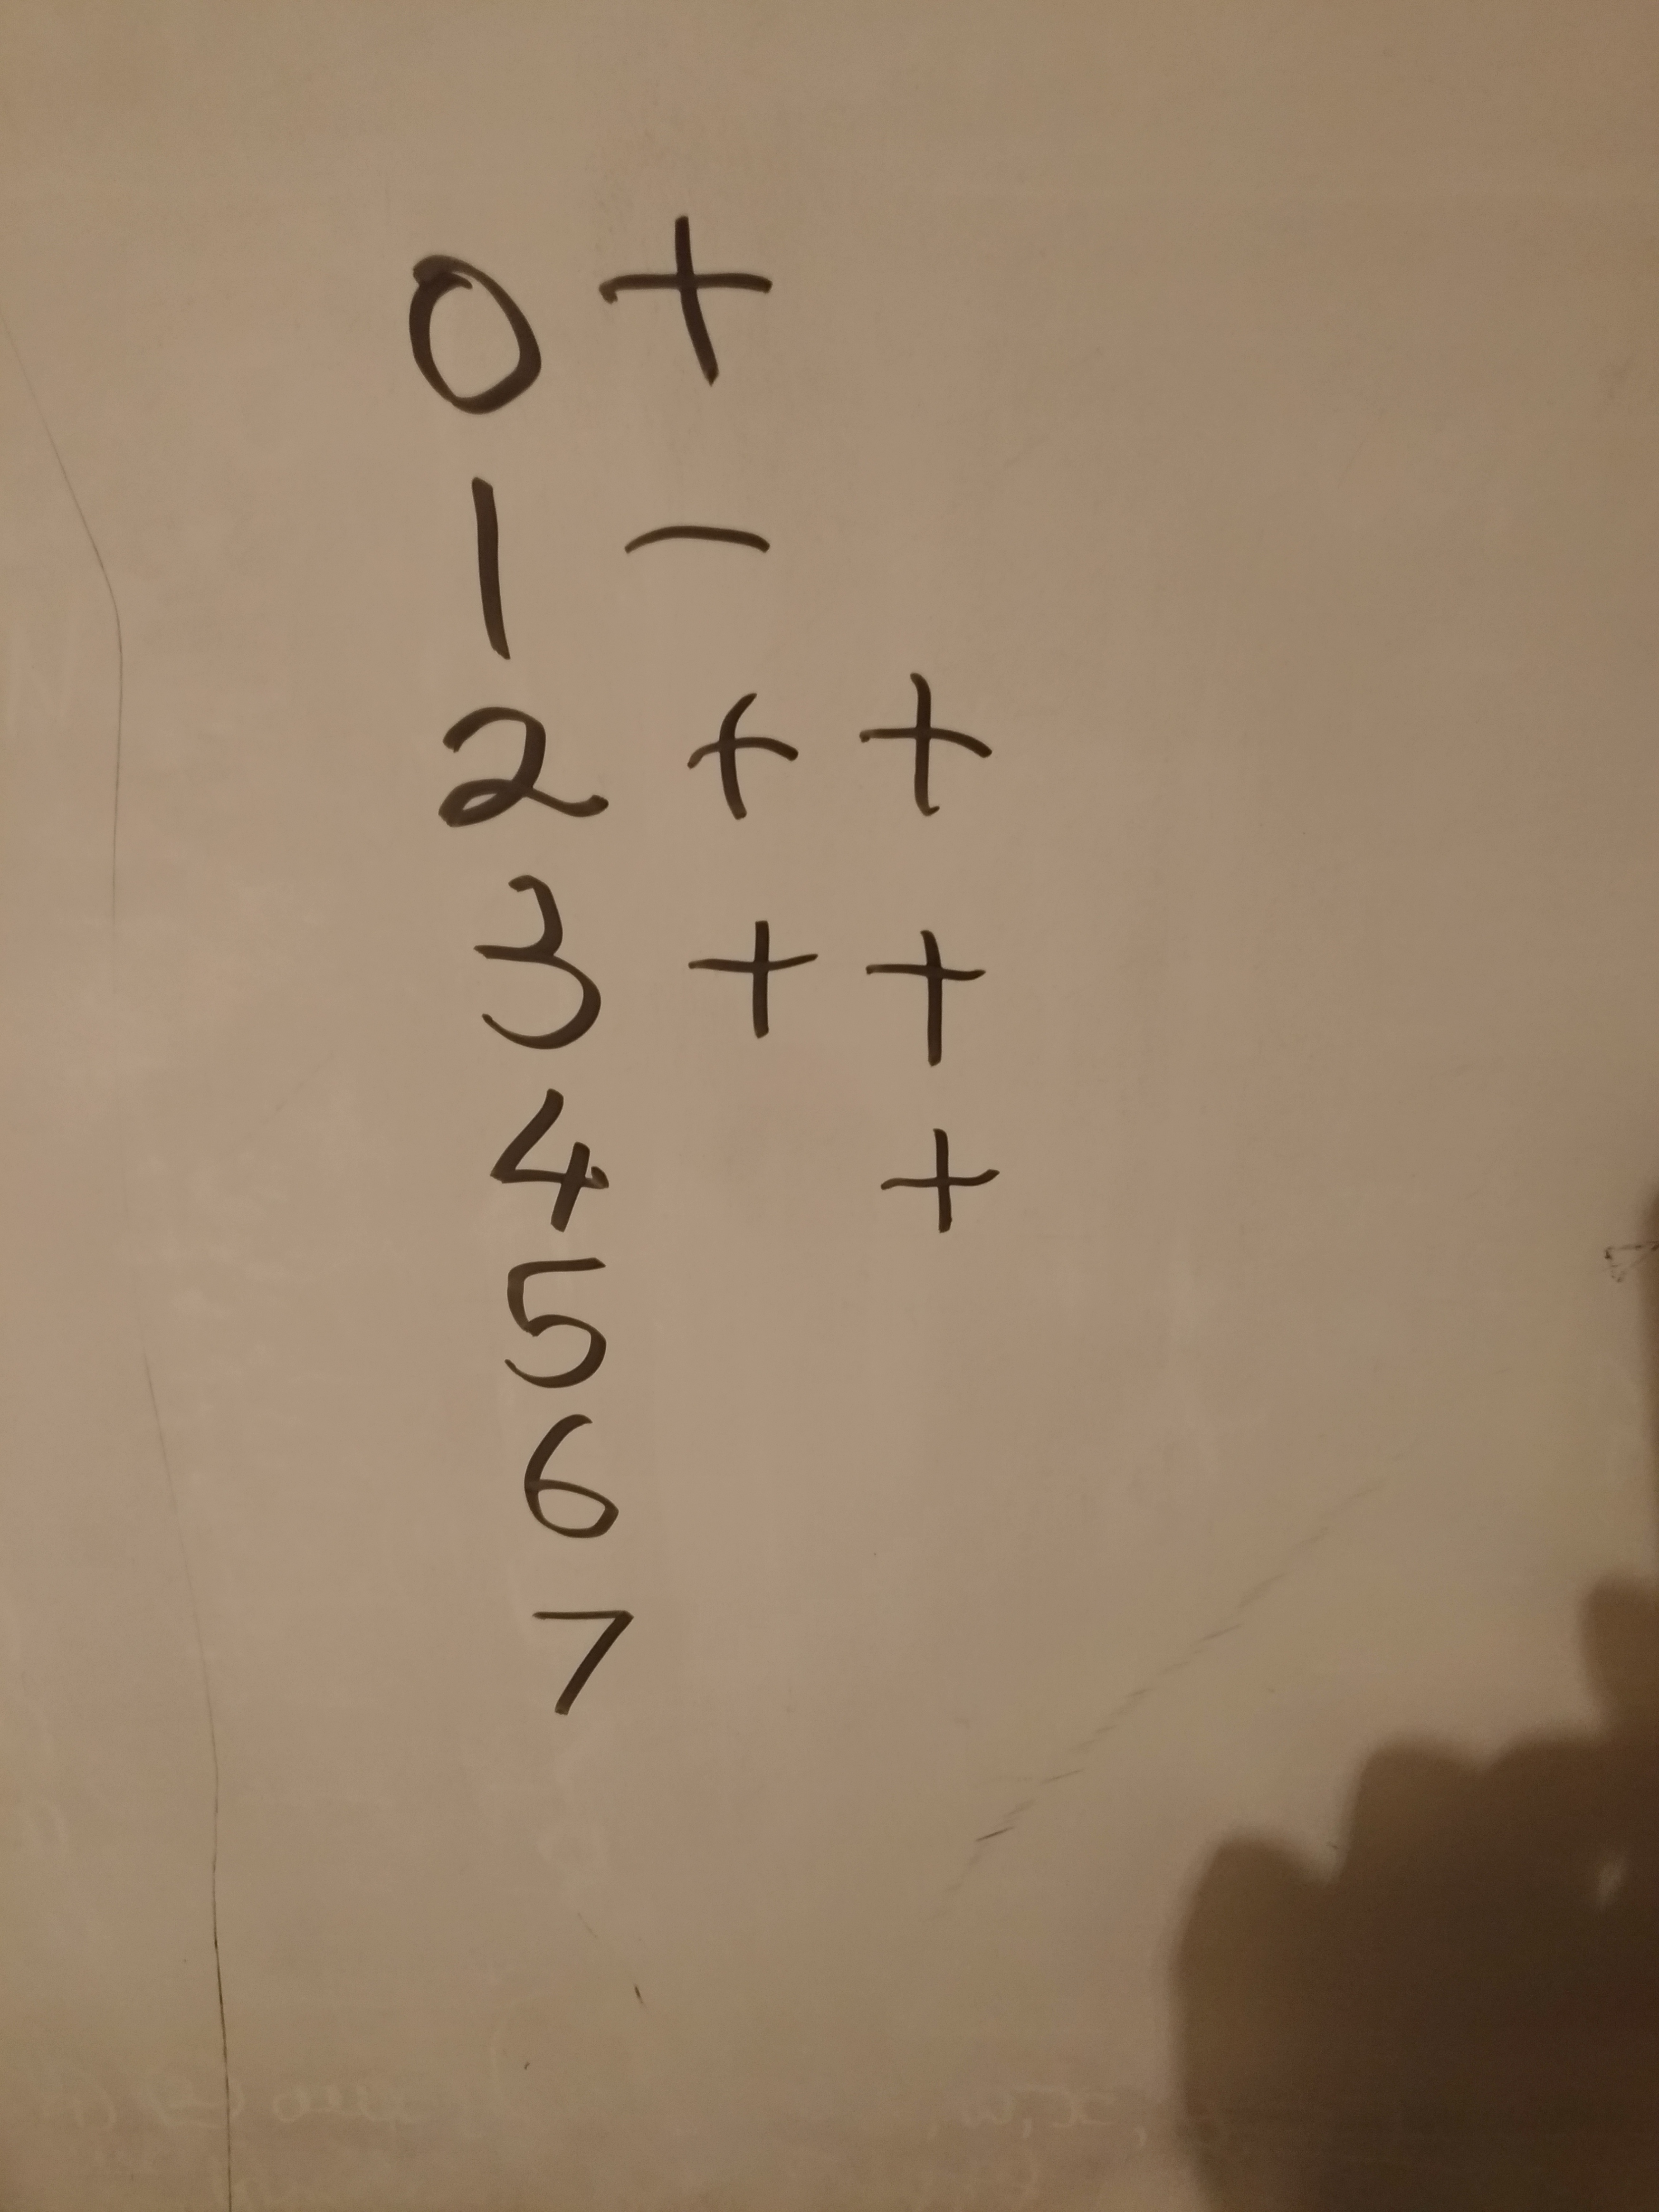 0 +
1 -
2 + +
3 + +
4 +
5
6
7